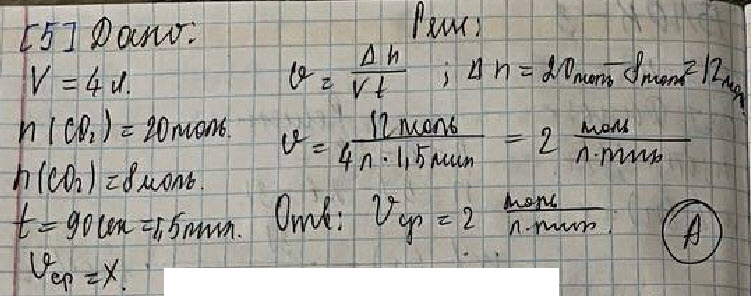 [5] Дано:
V = 4 л.
n (CO₂) = 20 моль.
n (CO₂) = 8 моль.
t = 90 сек = 1,5 мин.
Vср = X.
Реш:
υ = Δn / Vt ; Δn = 20 моль - 8 моль = 12 моль
υ = 12 моль / 4 л · 1,5 мин = 2 моль / л·мин
Отв: Vср = 2 моль / л·мин.
A